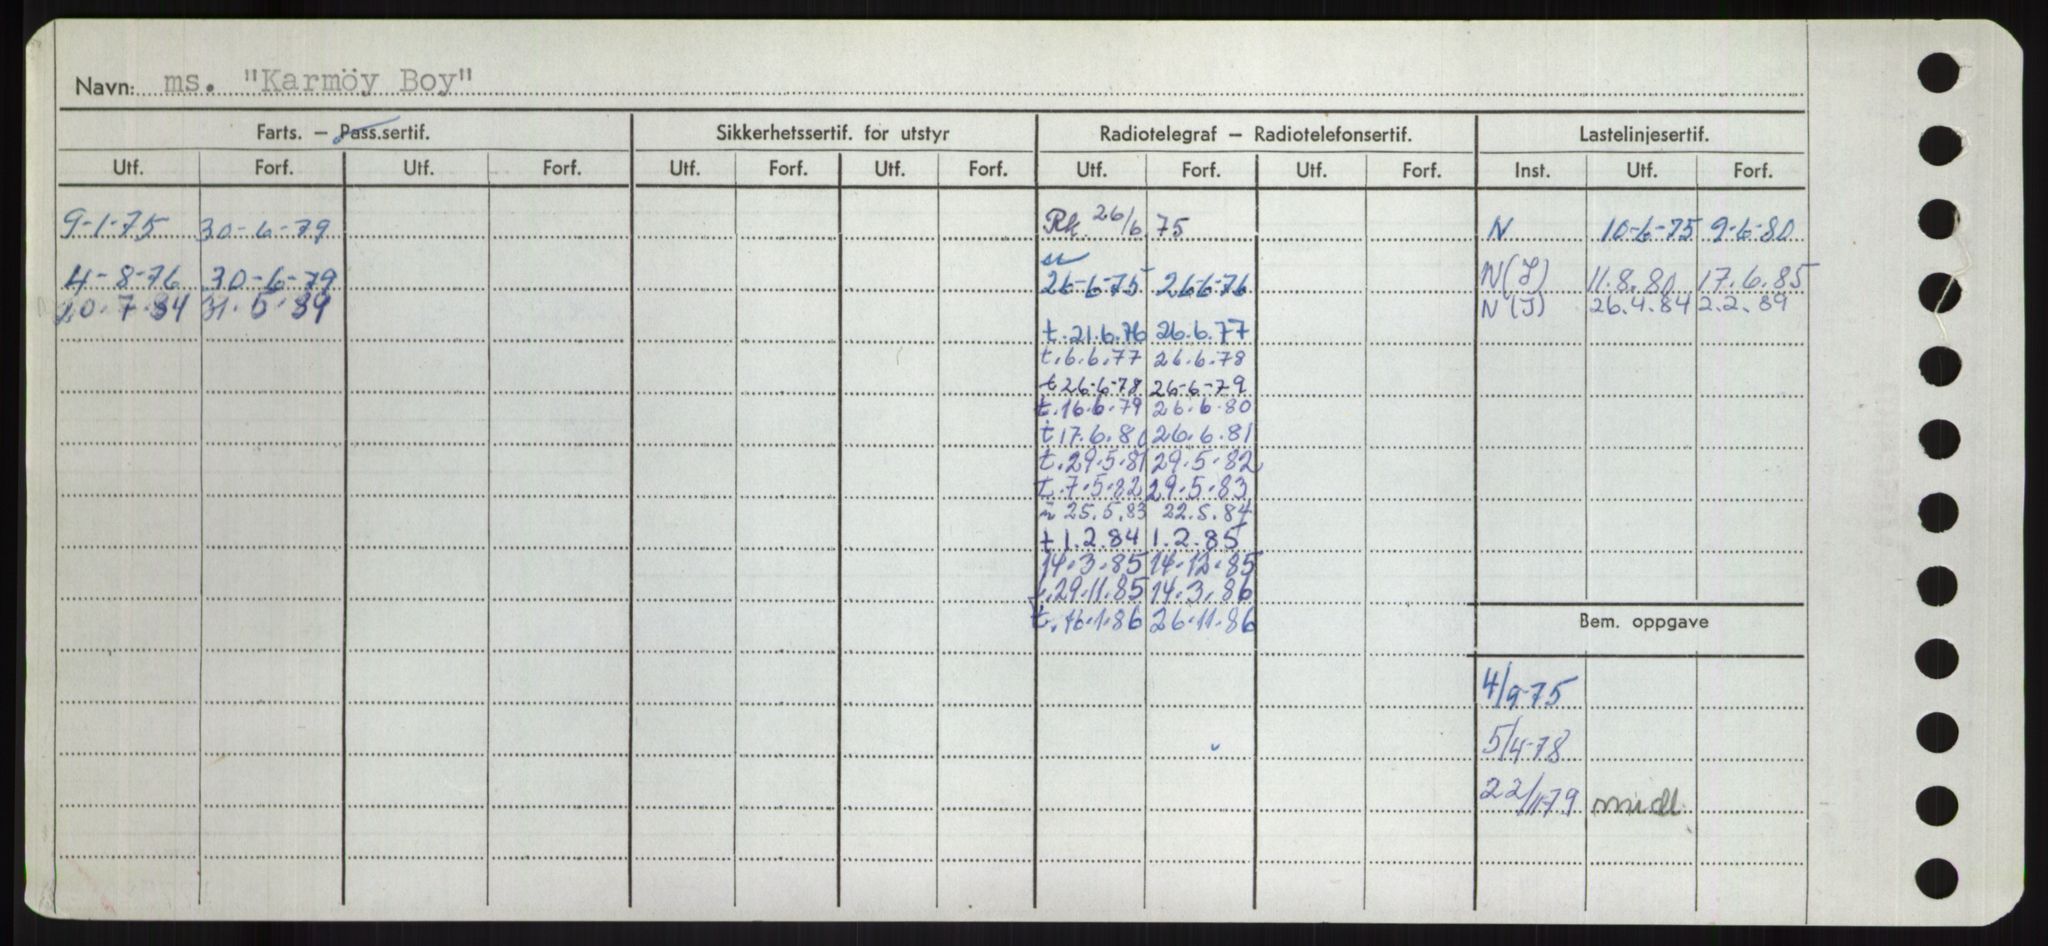 Navn: ms. "Karmöy Boy"
Farts. — Pass.sertif. Sikkerhetssertif. for utstyr Radiotelegraf — Radiotelefonsertif. Lastelinjesertif.
Utf. Forf. Utf. Forf. Utf. Forf. Utf. Forf. Utf. Forf. Utf. Forf. Inst. Utf. Forf.
9-1-75 30-6-79 Rk. 26/6 75 N 10-6-75 9-6-80
4-8-76 30-6-79 26-6-75 26-6-76 N(I) 11.8.80 17.6.85
20.7.84 31.5.89 N(I) 26.4.84 2.2.89
t.21.6.76 26.6.77
t.6.6.77 26.6.78
t 26-6-78 26-6-79
t.16.6.79 26.6.80
t 17.6.80 26.6.81
t.29.5.81 29.5.82
t.7.5.82 29.5.83
n 25.5.83 22.5.84
t 1.2.84 1.2.85
14.3.85 14.12.85
t.29.11.85 14.3.86
t.16.1.86 26.11.86
Bem. oppgave
4/9-75
5/4-78
22/11-79 midl.